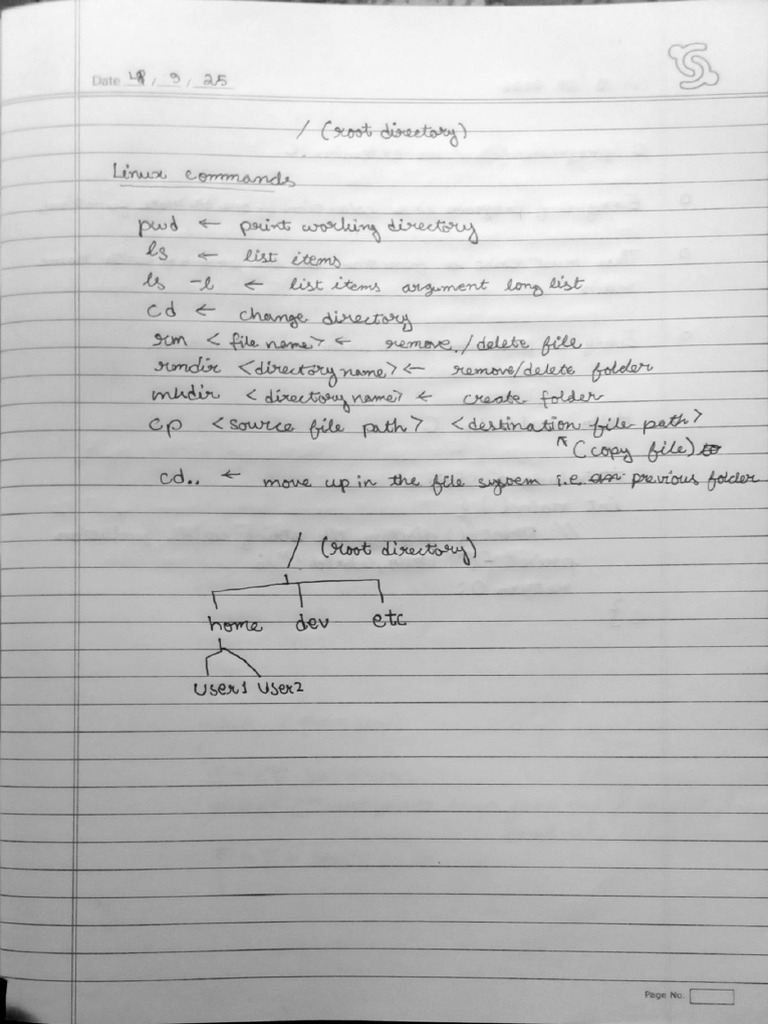 Date / 9 / 25
/ (root directory)
Linux commands
pwd ← print working directory
ls ← list items
ls -l ← list items argument long list
cd ← change directory
rm < file name> ← remove / delete file
rmdir <directory name> ← remove/delete folder
mkdir < directory name> ← create folder
cp <source file path> <destination file path>
↖ (copy file)
cd.. ← move up in the file system i.e. previous folder
/ (root directory)
home dev etc
user1 user2
Page No.